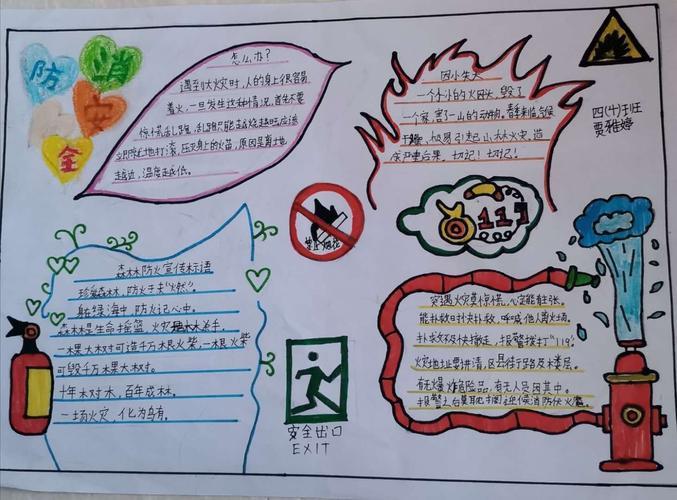 消
防
安
全
怎么办?
遇到火灾时,人的身上很容易
着火,一旦发生这种情况,首先不要
惊慌乱跑,乱跑只能越烧越旺应该
立即就地打滚,压灭身上的火苗,原因是离地
越近,温度越低。
因小失大
一个小小的火因头,毁了
一个家,害了一山的动物,春季来临气候
干燥,极易引起山林火灾,造
成严重后果,切记!切记!
四(十)班
贾雅婷
119
禁止烟花
森林防火宣传标语
珍爱森林,防火于未"燃"。
躺在绿海中,防火记心中。
森林是生命摇篮,火灾是大杀手。
一棵大树可造千万根火柴,一根火柴
可毁千万棵大树。
十年树木,百年成林。
一场火灾,化为乌有。
安全出口
EXIT
突遇火灾莫惊慌,心定能主张。
能扑救时快扑救,呼喊他人离火场。
扑求火不及快撤走,报警拨打"119"。
火灾地址要讲清,区县街路及楼层。
有无爆炸危险品,有无人员困其中。
报警之后莫耽搁迎候消防伏火魔。